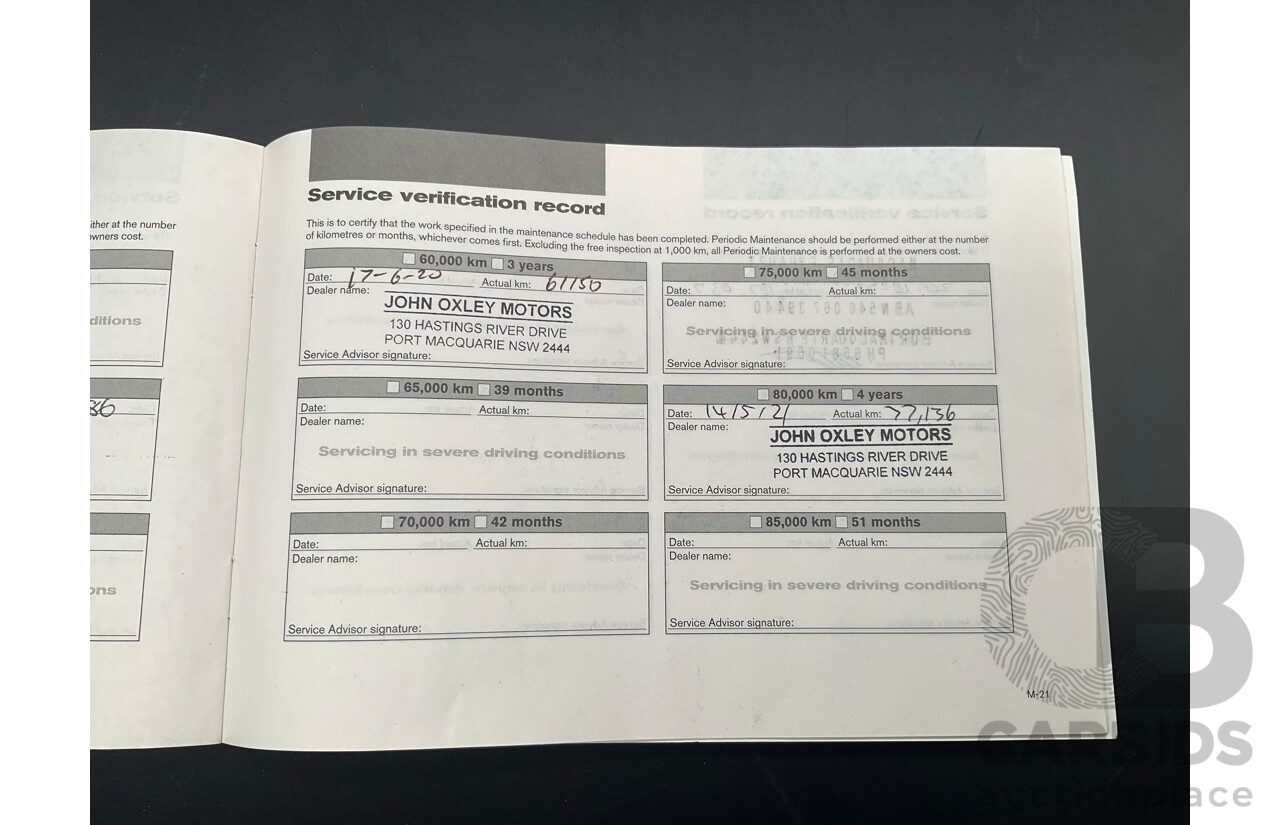 ither at the number
owners cost.
ditions
86
ons
Service verification record
This is to certify that the work specified in the maintenance schedule has been completed. Periodic Maintenance should be performed either at the number
of kilometres or months, whichever comes first. Excluding the free inspection at 1,000 km, all Periodic Maintenance is performed at the owners cost.
60,000 km 3 years
Date: 17-6-20 Actual km: 61150
Dealer name:
JOHN OXLEY MOTORS
130 HASTINGS RIVER DRIVE
PORT MACQUARIE NSW 2444
Service Advisor signature:
65,000 km 39 months
Date: Actual km:
Dealer name:
Servicing in severe driving conditions
Service Advisor signature:
70,000 km 42 months
Date: Actual km:
Dealer name:
Service Advisor signature:
75,000 km 45 months
Date: Actual km:
Dealer name:
Servicing in severe driving conditions
Service Advisor signature:
80,000 km 4 years
Date: 14/5/21 Actual km: 77,136
Dealer name:
JOHN OXLEY MOTORS
130 HASTINGS RIVER DRIVE
PORT MACQUARIE NSW 2444
Service Advisor signature:
85,000 km 51 months
Date: Actual km:
Dealer name:
Servicing in severe driving conditions
Service Advisor signature:
M-21
CB
CARBIDS
auctionplace